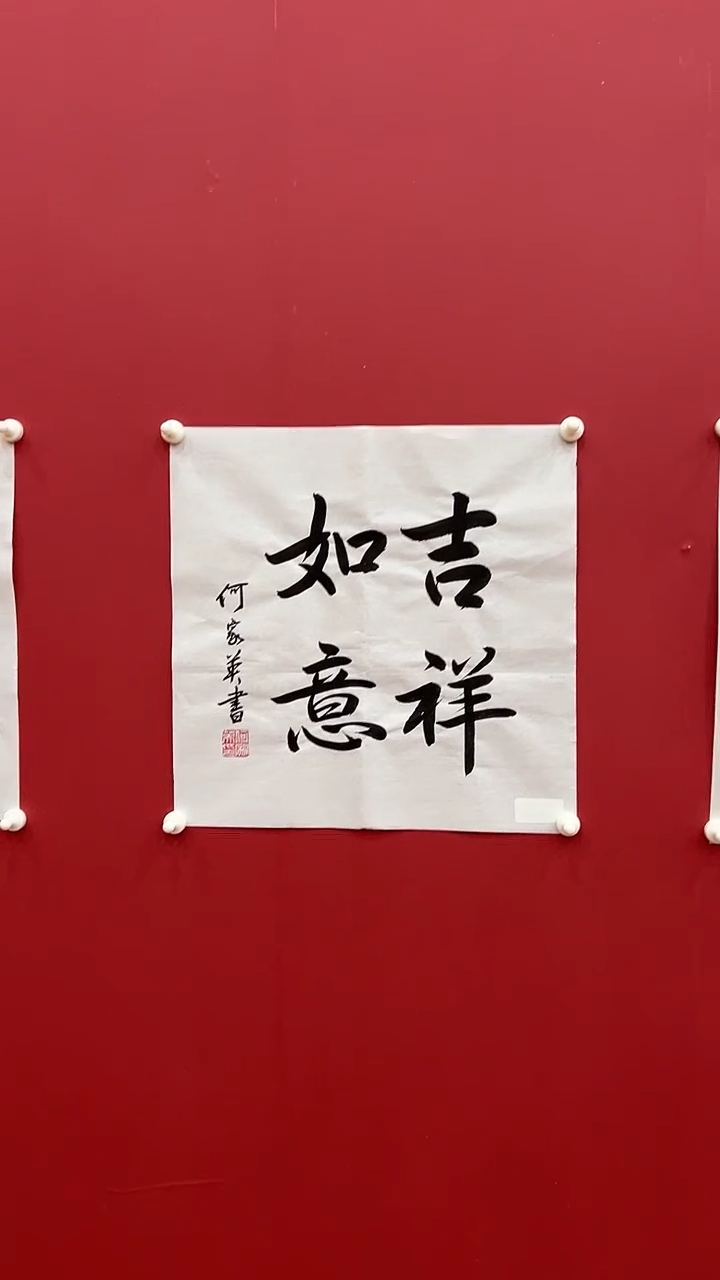 吉祥
如意
何家英書